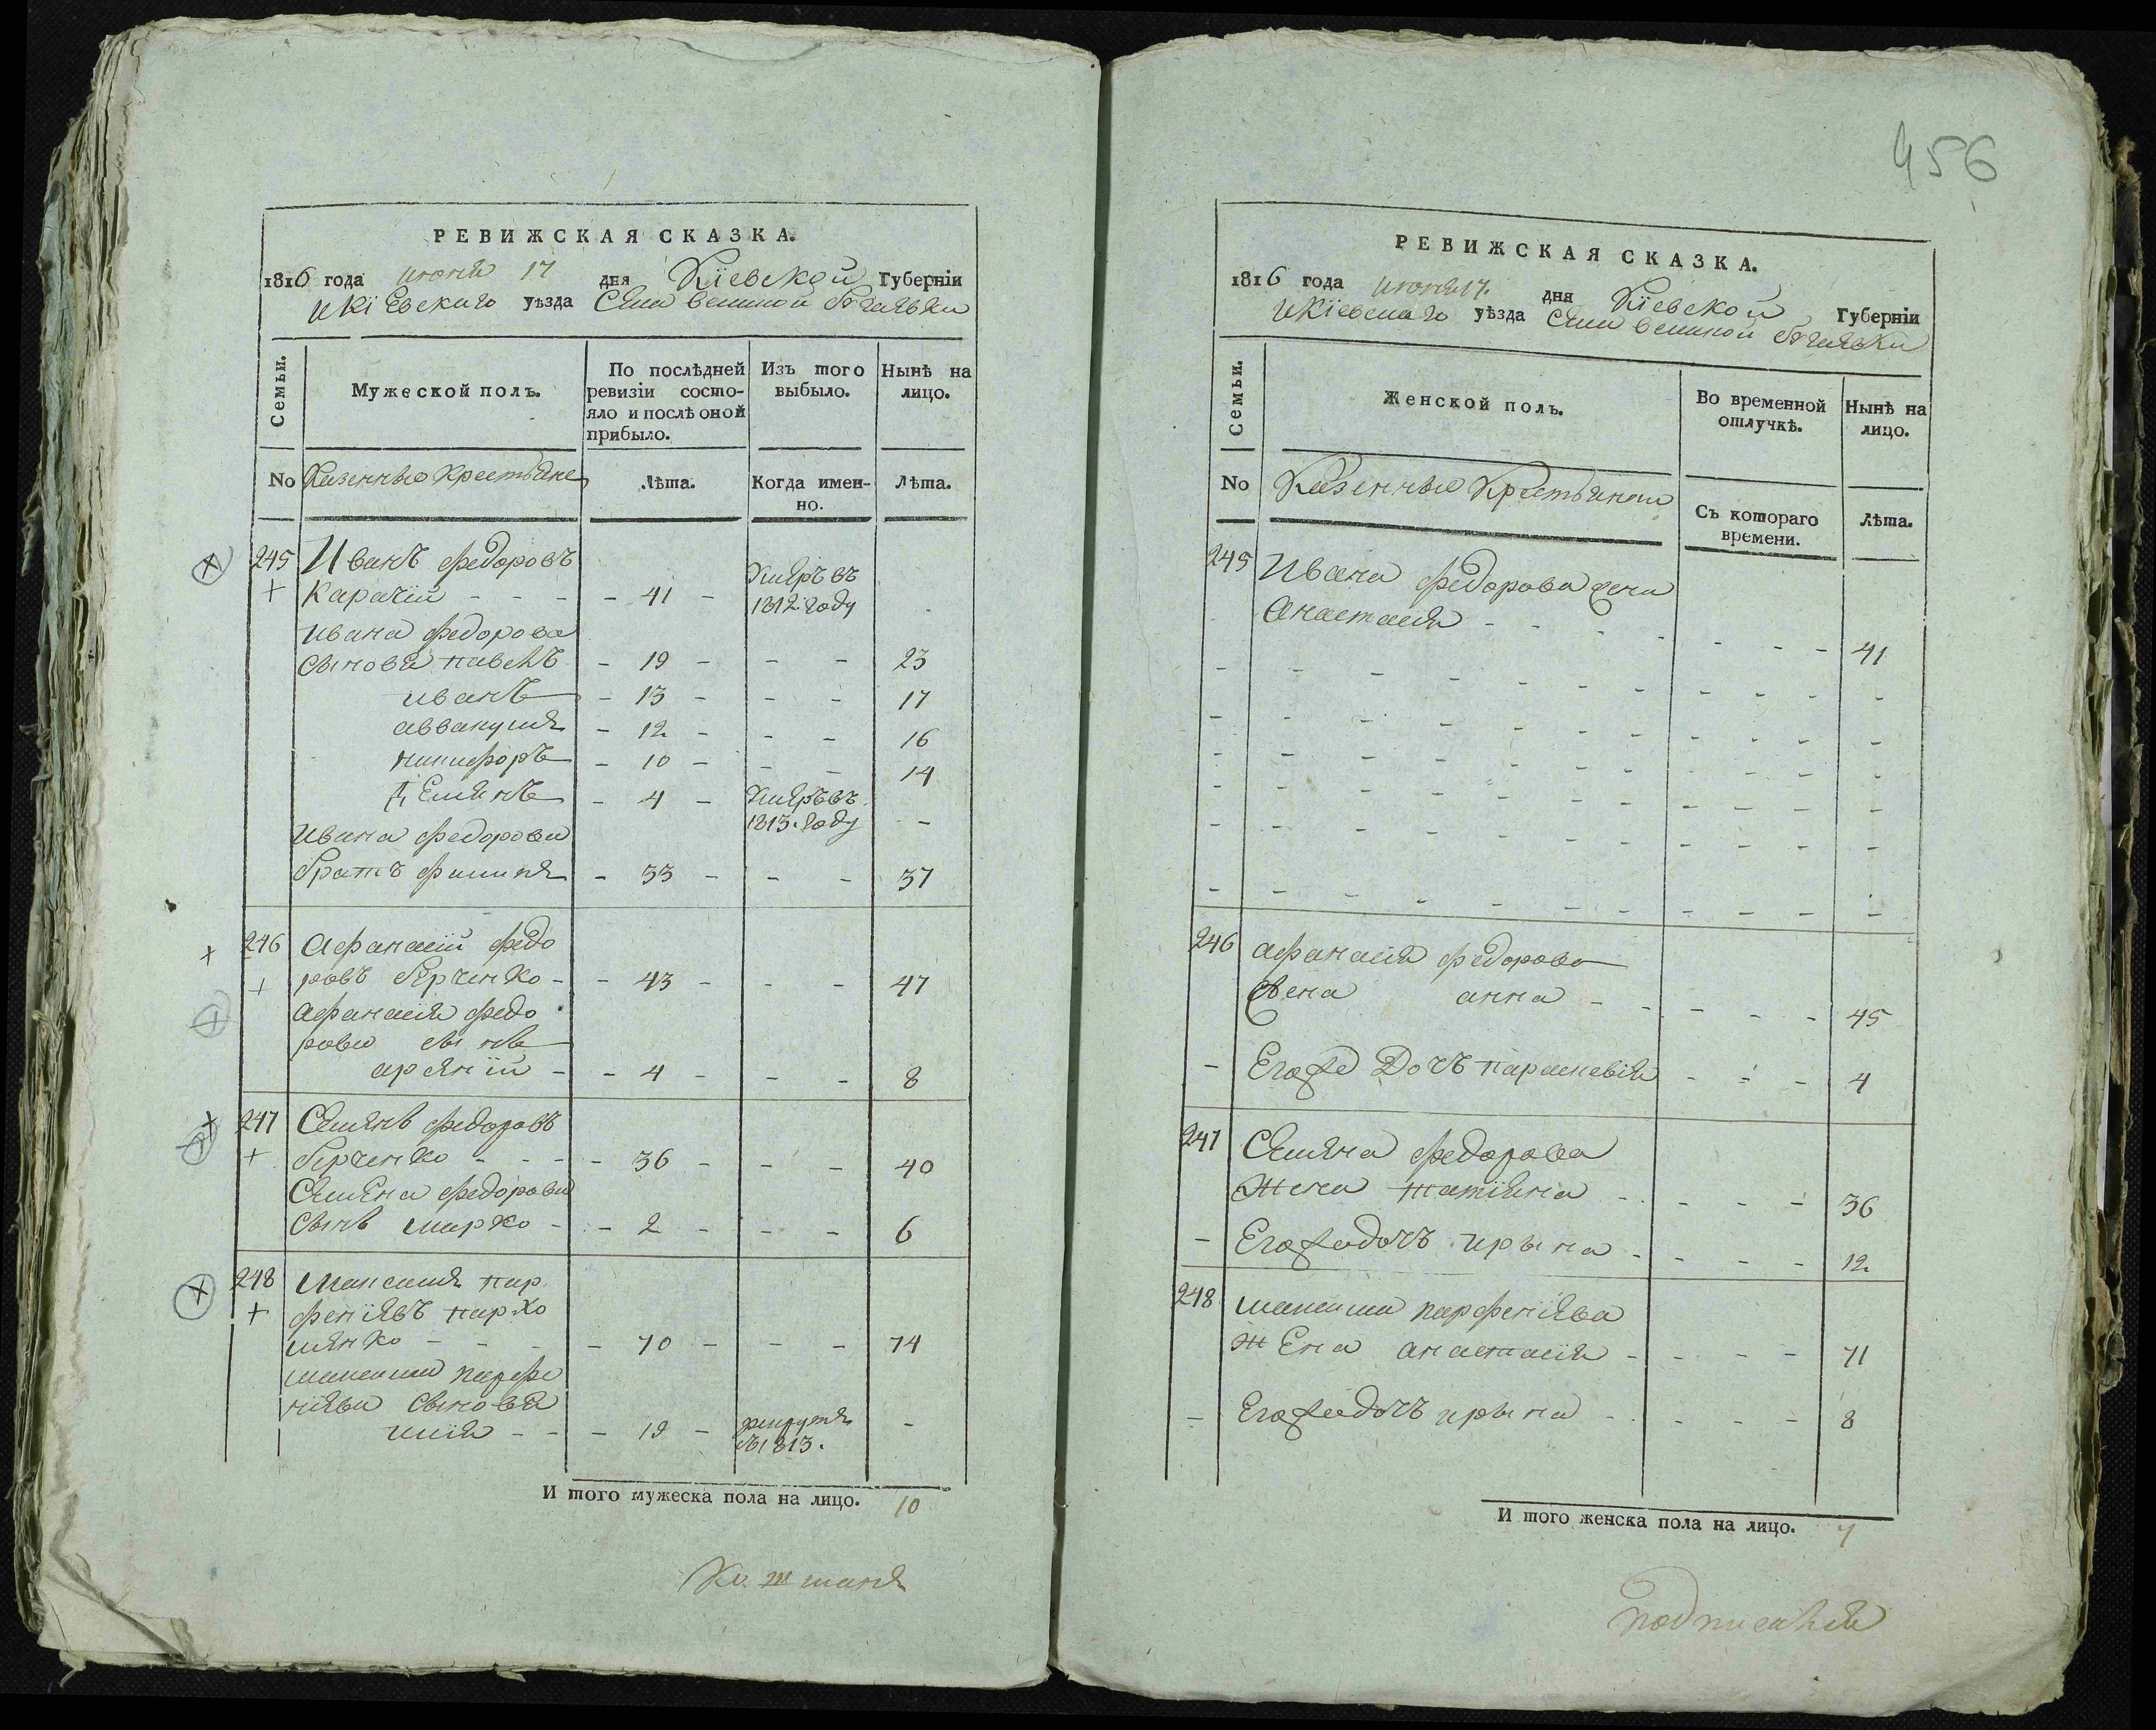 РЕВИЖСКАЯ СКАЗКА.
1816 года июня 17 дня Кіевской Губерніи
и Кіевскаго уѣзда Села великой
Семьи.
Мужеской полъ.
По послѣдней ревизіи состо-
яло и послѣ оной
прибыло.
Изъ того
выбыло.
Нынѣ на
лицо.
No
Казенные крестьяне
Лѣта.
Когда имен-
но.
Лѣта.
245 Иванъ Федоровъ
+ Карачій - - - 41 - умеръ въ 1812 году -
Ивана Федорова
сыновья павелъ - 19 - - - 23
иванъ - 13 - - - 17
аввакумъ - 12 - - - 16
никифоръ - 10 - - - 14
Демянъ - 4 - умеръ въ 1813. году -
Ивана Федорова
братъ филипъ - 33 - - - 37
246 Афанасій Федо
+ ровъ - - 43 - - - 47
Афанасія Федо
рова сынъ
арсеній - - 4 - - - 8
247 Семенъ Федоровъ
+ - - - 36 - - - 40
Семена Федорова
сынъ марко - - 2 - - - 6
248 Максимъ пар
+ феніевъ пархо
менко - - - 70 - - - 74
максима парфе
ніева сыновья
илія - - - 19 - рекрутъ въ 1813. -
И того мужеска пола на лицо. 10
456
РЕВИЖСКАЯ СКАЗКА.
1816 года июня 17. дня Кіевской Губерніи
и Кіевскаго уѣзда Села великой
Семьи.
Женской полъ.
Во временной
отлучкѣ.
Нынѣ на
лицо.
No
Казенные крестьянки
Съ котораго
времени.
Лѣта.
245 Ивана Федорова жена
Анастасія - - - - - - - 41
246 афанасія Федорова
жена анна - - - - - 45
- Его же Дочь параскевія - - - 4
247 Семена Федорова
жена татіяна - - - - 36
- Его же дочь ирына - - - - 12
248 максима парфеніева
жена анастасія - - - - 71
- Его же дочь ирына - - - - 8
И того женска пола на лицо. 7